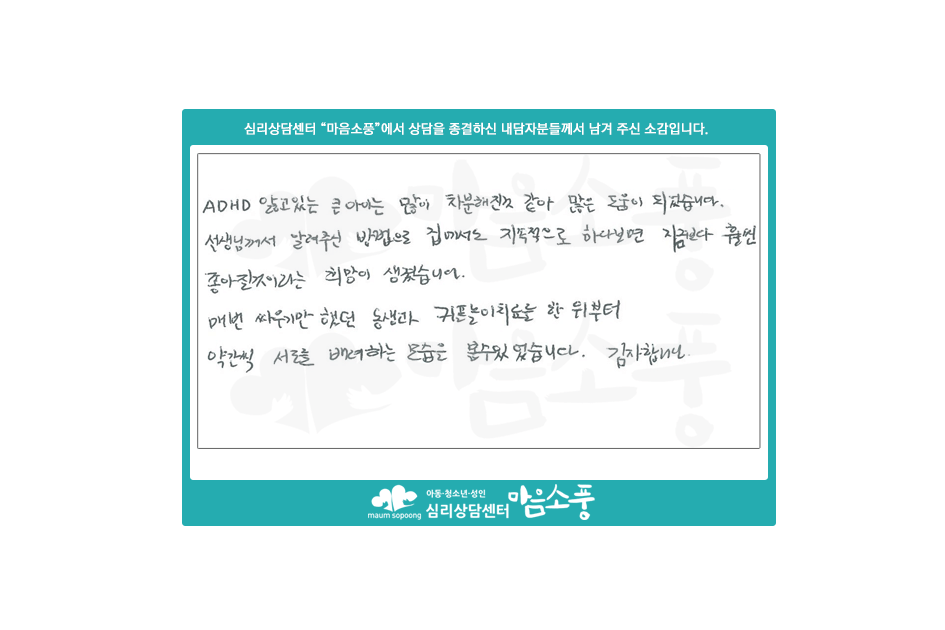 심리상담센터 “마음소풍”에서 상담을 종결하신 내담자분들께서 남겨 주신 소감입니다.
ADHD 앓고있는 큰아이는 많이 차분해진것 같아 많은 도움이 되었습니다.
선생님께서 알려주신 방법으로 집에서도 지속적으로 하다보면 지금보다 훨씬
좋아질것이라는 희망이 생겼습니다.
매번 싸우기만 했던 동생과 커플놀이치료를 한 뒤부터
약간씩 서로를 배려하는 모습을 볼수있었습니다. 감사합니다
마음소풍
마음소풍
maum sopoong
아동·청소년·성인
심리상담센터 마음소풍